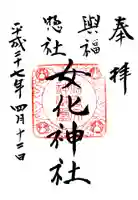 奉拝
興福
惣社
女化神社
平成二十七年四月十二日